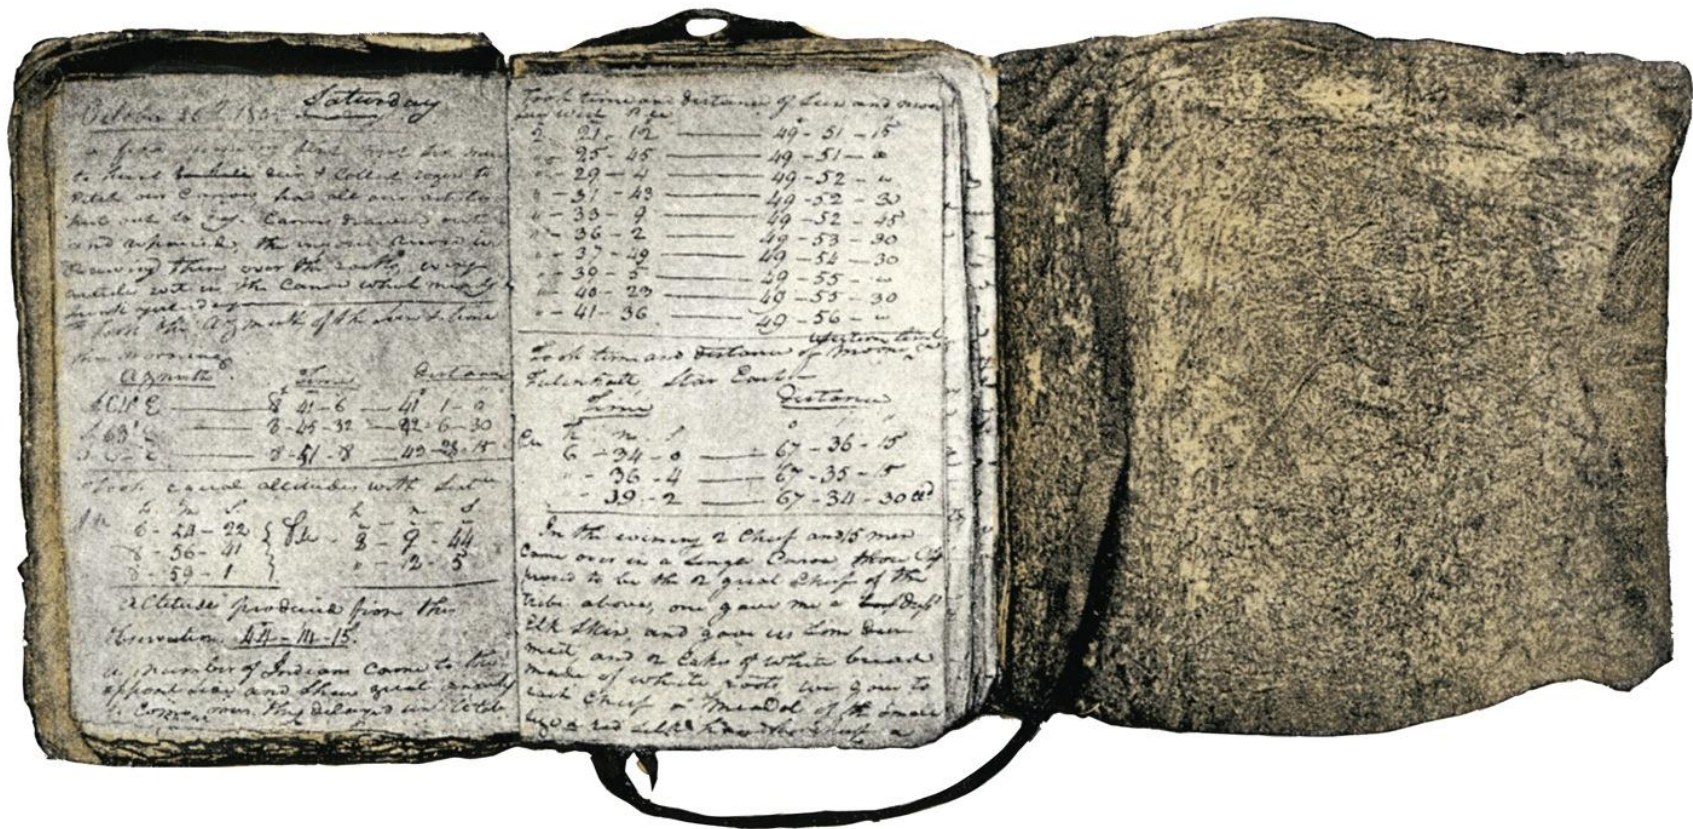 October 26th 1805 Saturday
a fine morning Sent out Six men
to hunt deer & Collect rozin to
Pitch our Canoes, had all our articles
put out to Dry. Canoes drawed out
and repaired, the injories recved in
drawing them over the rocks, every
article wet in the Canoe which nearly
sunk yesterday
Took the Azmuth of the Sun & time
this morning
Azmuth Time Distance
S. 64° E 8 41 - 6 41° 1 - 0
S. 63° E 8 - 45 - 32 42 - 6 - 30
8 - 51 - 8 43 - 23 - 15
Took equal altitudes with
h m S h m S
8 - 54 - 22 } P.M. - 3 - 9 - 44
8 - 56 - 41 "
8 - 59 - 1 } " - 12 - 5
altitude produced from this
Observation 44 - 14 - 15
a number of Indians came to the
opposit side and Shew great anxiety
to come over, they delayed untill late
Took time and distance of Sun and moon
Sun West P.M.
2 21 - 12 49 - 51 - 15
" - 25 - 45 49 - 51 - "
" - 29 - 4 49 - 52 - "
" - 31 - 43 49 - 52 - 30
" - 33 - 9 49 - 52 - 45
" - 36 - 2 49 - 53 - 30
" - 37 - 49 49 - 54 - 30
" - 39 - 5 49 - 55 - "
" - 40 - 23 49 - 55 - 30
" - 41 - 36 49 - 56 - "
Western limb
Took time and Distance of Moons and
Star East
Time Distance
h m S ° ' "
6 - 34 - 0 67 - 36 - 15
" - 36 - 4 67 - 35 - 15
" - 39 - 2 67 - 34 - 30
In the evening 2 Chief and 15 men
Came over in a Single Canoe those Chfs
proved to be the 2 great Chiefs of the
tribe above, one gave me a Dressd
Elk Skin, and gave us Som deer
meet, and 2 Cakes of white bread
made of white roots, we gave to
each Chief a Meadel of the Small
Size a red Silk handkerchief a